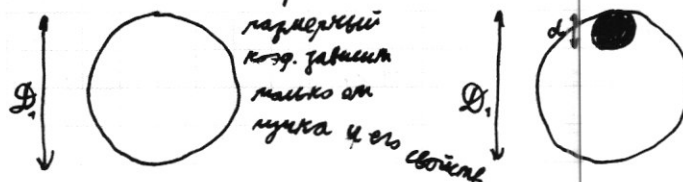 размерный
коэф. зависит
только от
пучка и его свойств
D₁
D₁
d